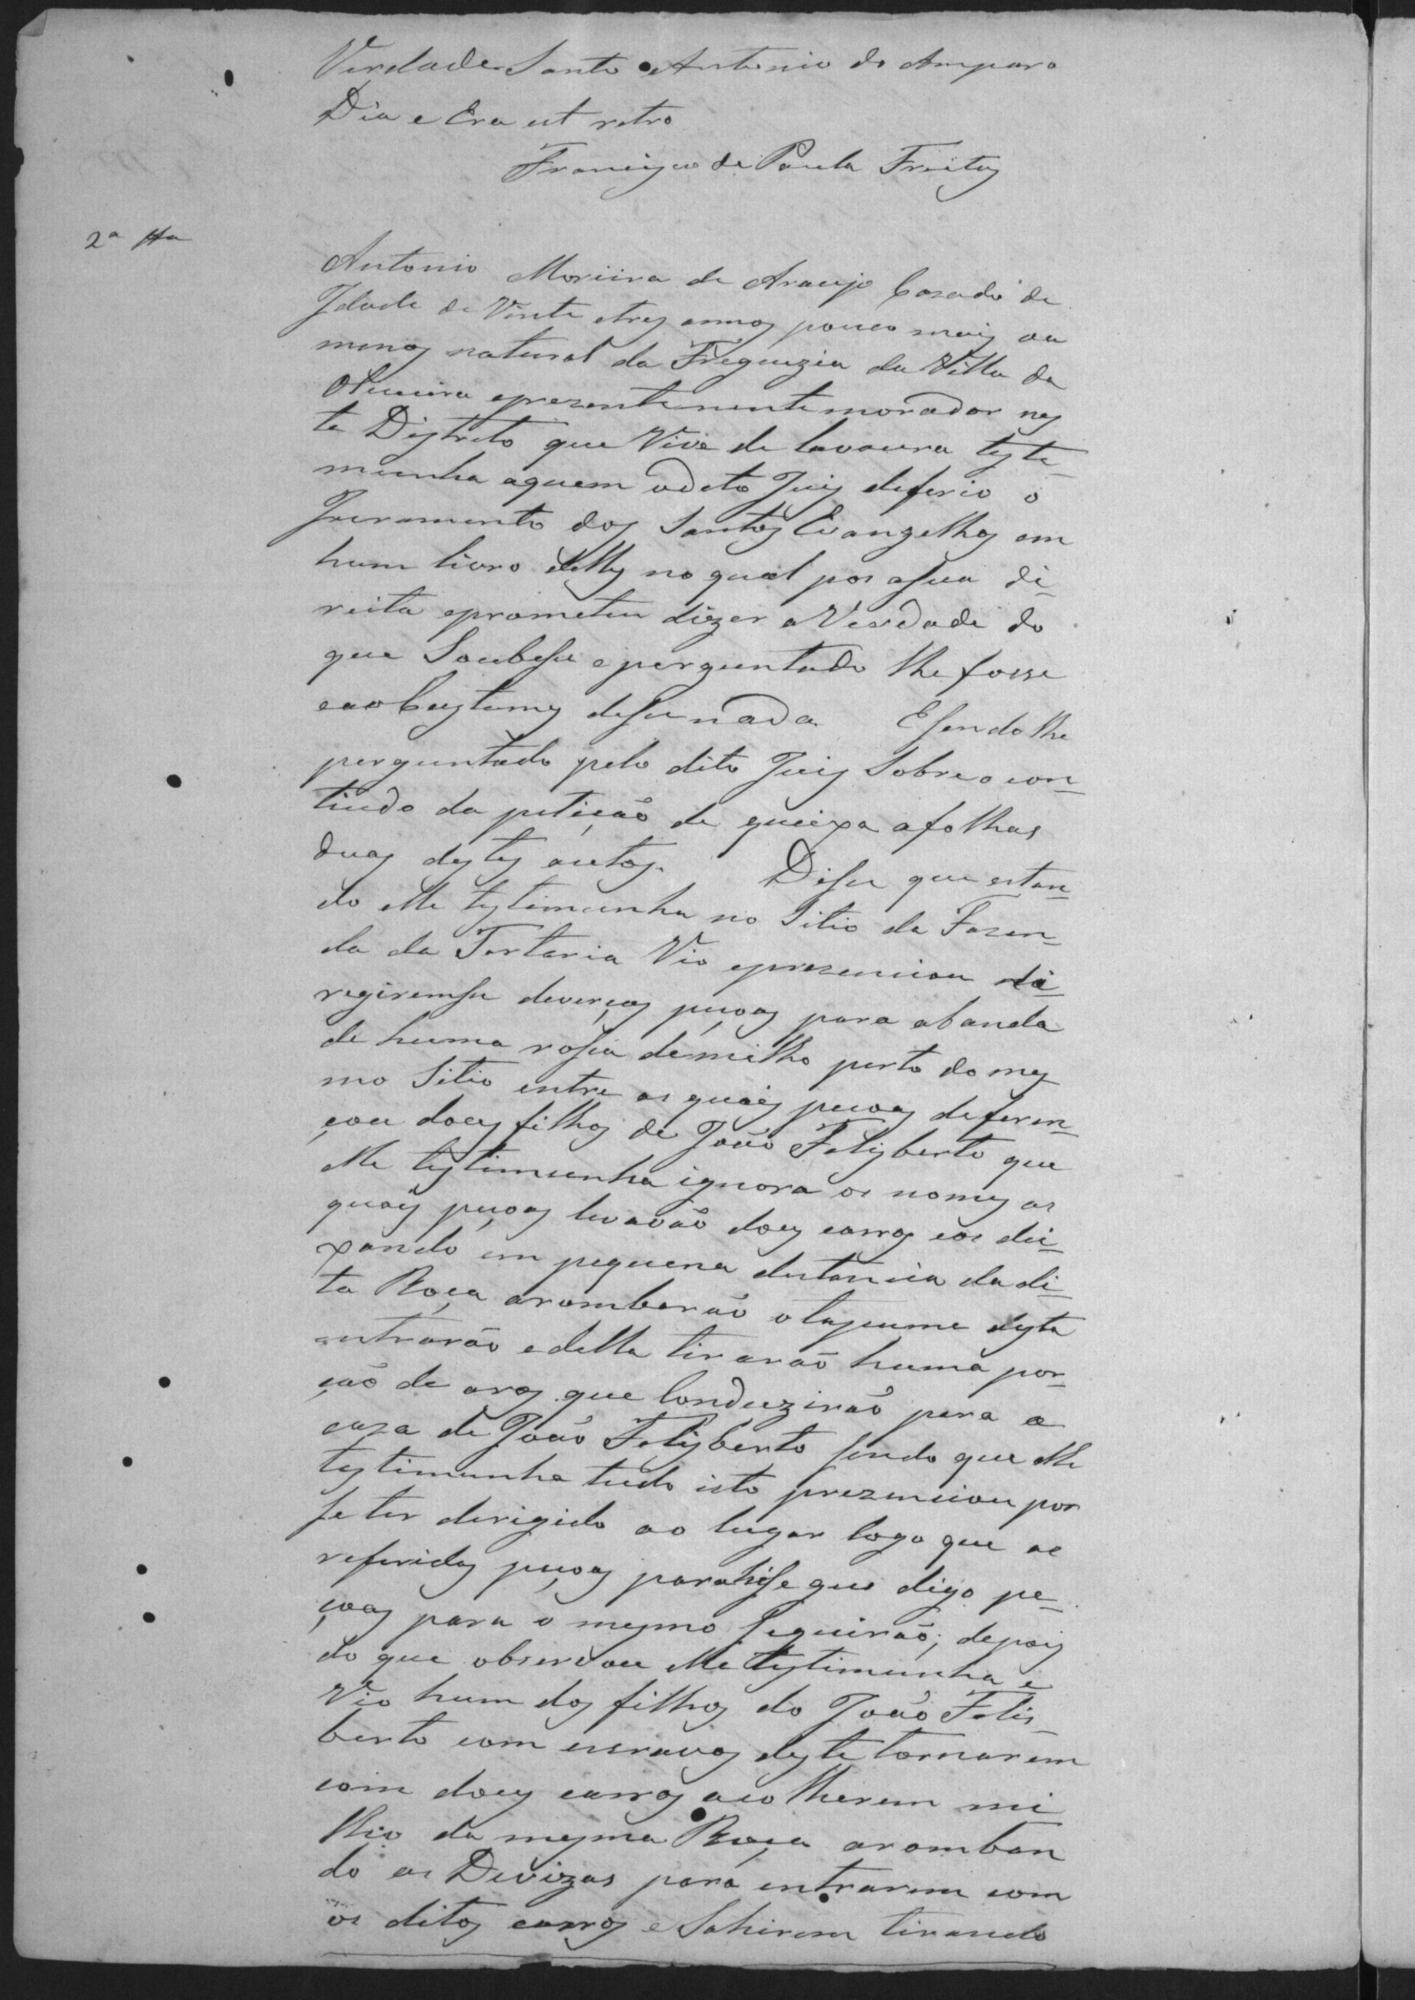 Verdade Santo Antonio do Amparo
Dia e Era ut retro
Francisco de Paula Freitas
2ª tta
Antonio Moreira de Araujo Casado de
Idade de Vinte etres annos pouco mais ou
menos natural da Freguezia da Villa de
Oliveira eprezentemente morador nes
te Destreto que Vive de lavoura teste-
munha aquem odeto Juis deferio o
Juramento dos Santos Evangelhos em
hum livro delles no qual pos asua di-
reita eprometeu dizer a Verdade do
que Soubesse e perguntado lhe fosse
eaoCustume desse nada Esendolhe
perguntado pelo dito Juis Sobre o con-
tiudo da petição de queixa afolhas
duas destes autos. Disse que estan-
do elle testimunha no Sitio da Fazen-
da da Tartaria Vio eprezenciou di-
regiremse deverças peçoas para abanda
de huma rossa demilho perto do mes
mo Sitio entre as quais peçoas deferen-
çou dous filhos de João Felisberto que
elle testimunha ignora os nomes as
quais peçoas levavão dous carros eos dei-
xando em pequena distancia da di-
ta Roça arombarão o tapume desta
entrarão e della tirarão huma por-
ção de aros que Conduzirão para a
caza de João Felisberto sendo que elle
testimunha tudo isto prezenciou por
se ter dirigido ao lugar logo que as
referidas peçoas que digo pe-
çoas para o mesmo seguirão; depois
do que observou elle testimunha e
Vio hum dos filhos do João Felis-
berto com escravos deste tornarem
com dous carros acolherem mi
lho da mesma Roça aromban
do as Devizas para entrarem com
os ditos carros e Sahirem tirando